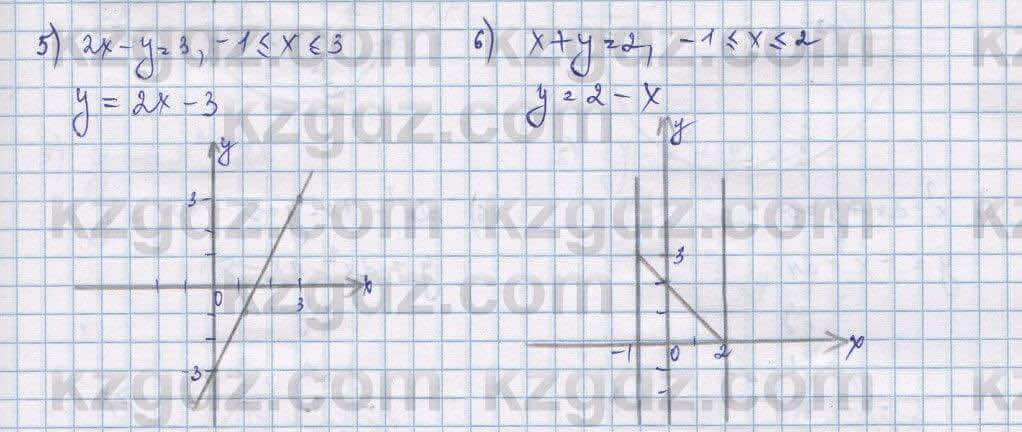 5) 2x - y = 3, -1 ≤ x ≤ 3
y = 2x - 3
y
3
0
3
x
-3
6) x + y = 2, -1 ≤ x ≤ 2
y = 2 - x
y
3
-1
0
2
x
kzgdz.com
kzgdz.com
kzgdz.com
kzgdz.com
kzgdz.com
kzgdz.com
kzgdz.com